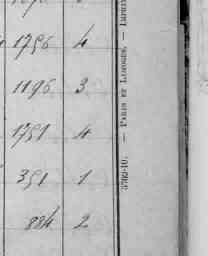 1756 4
1196 3
1791 4
391 1
884 2
3792-10. — PARIS ET LIMOGES. — IMPRI